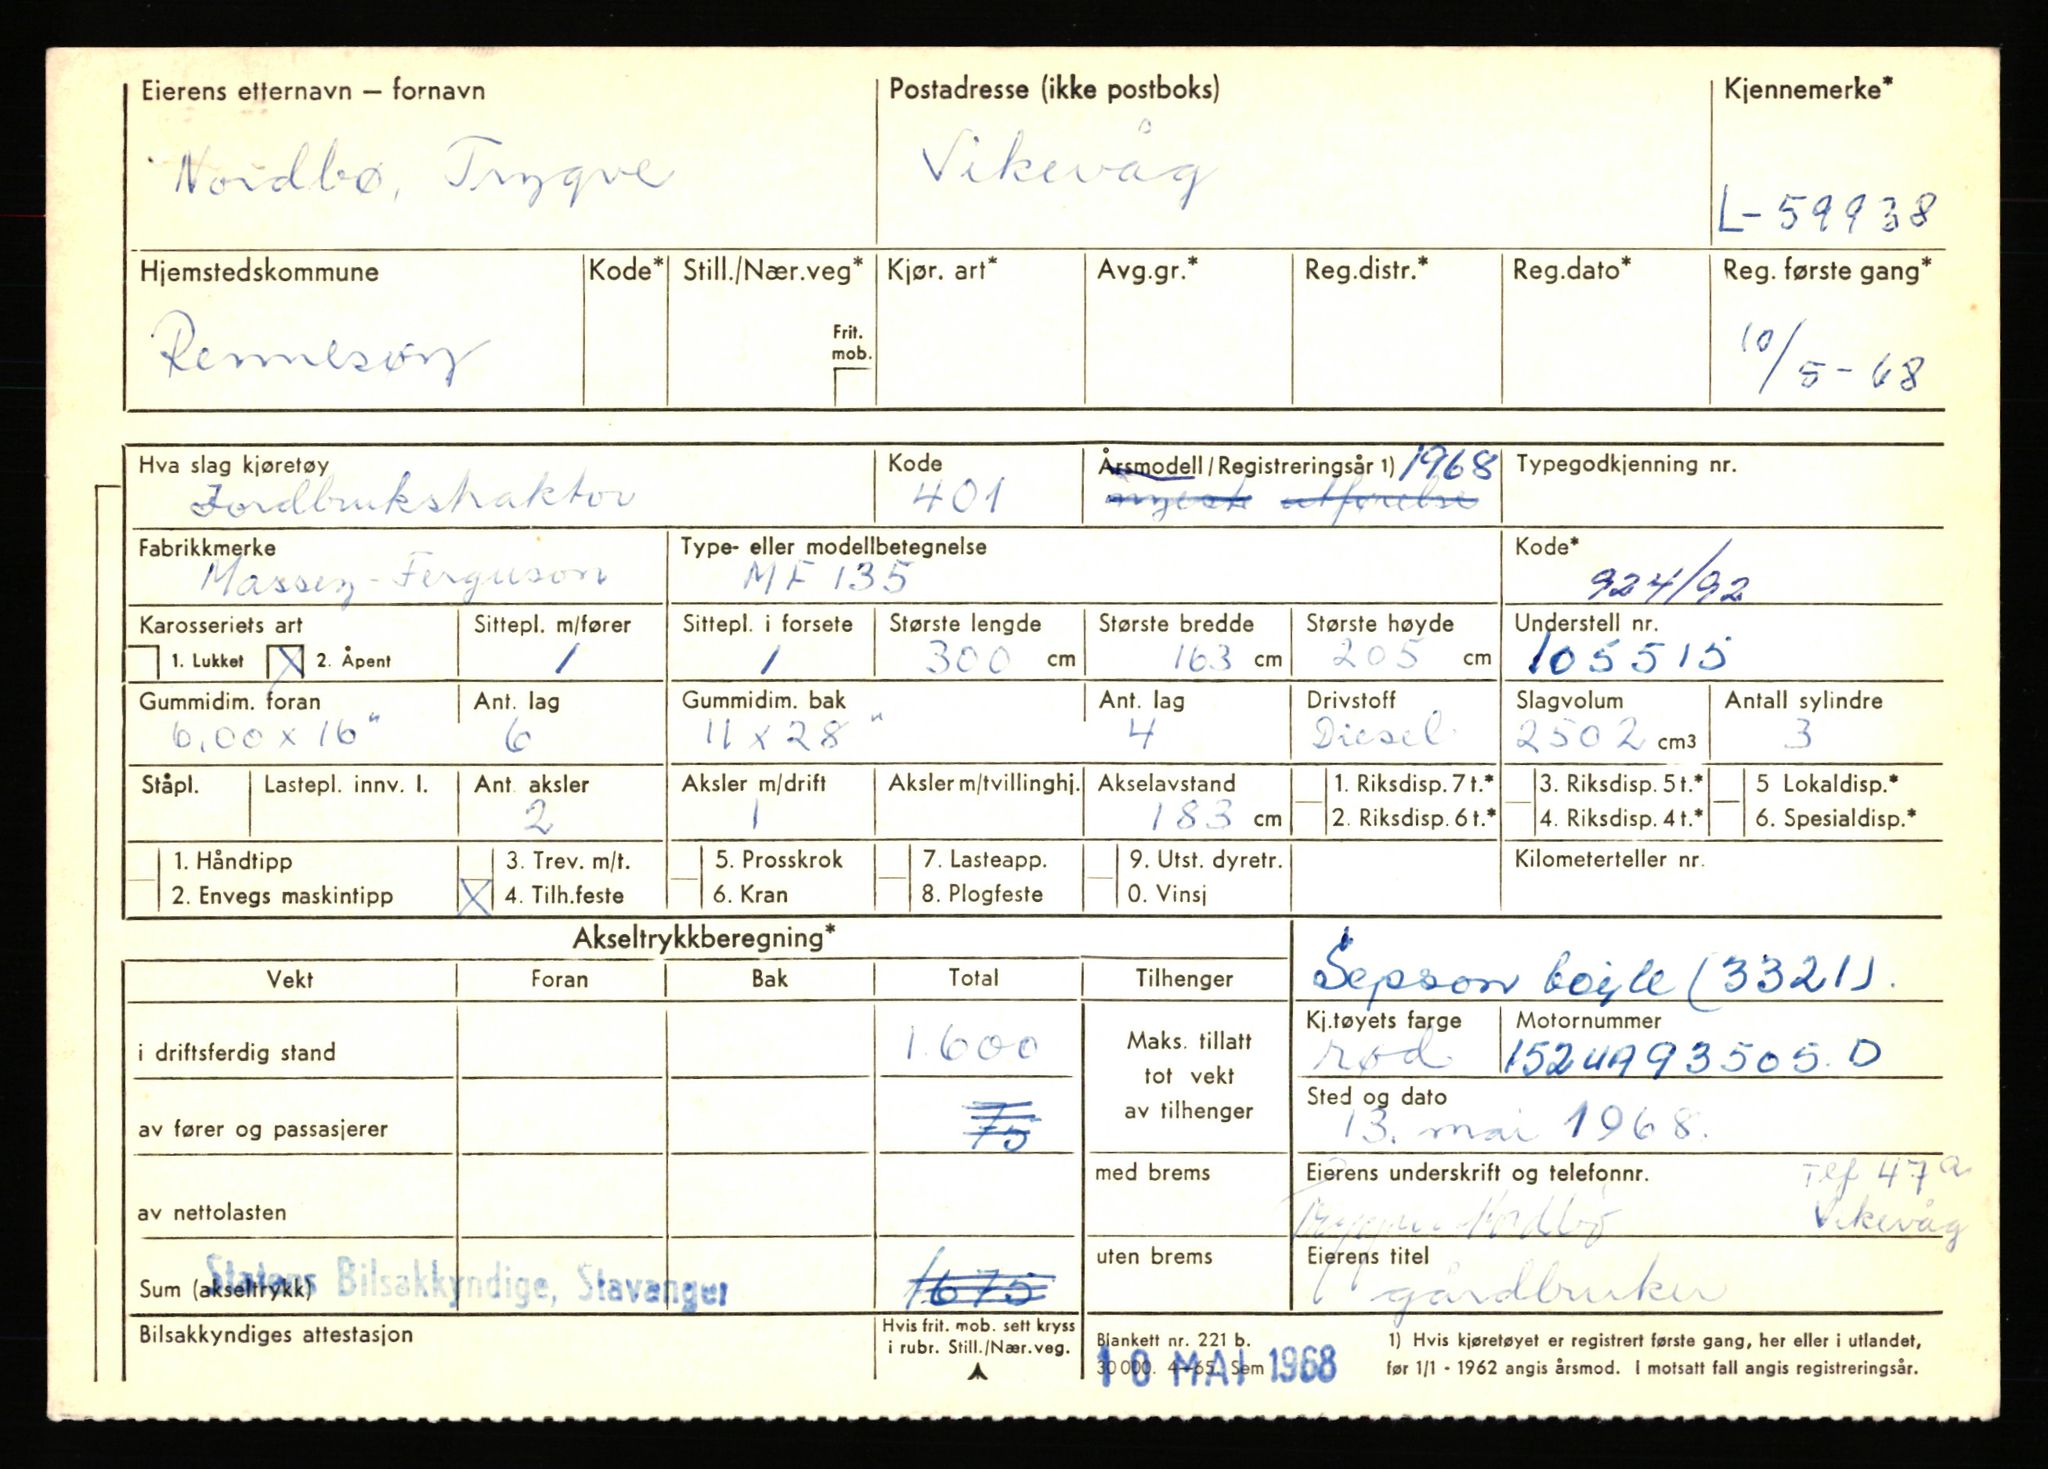 Eierens etternavn — fornavn Postadresse (ikke postboks) Kjennemerke*
Nordbø, Trygve Vikevåg L-59938
Hjemstedskommune Kode* Still./Nær.veg* Kjør. art* Avg.gr.* Reg.distr.* Reg.dato* Reg. første gang*
Frit. mob.
Rennesøy 10/5-68
Hva slag kjøretøy Kode Årsmodell/Registreringsår 1) 1968 Typegodkjenning nr.
Jordbrukstraktor 401 nyeste utførelse
Fabrikkmerke Type- eller modellbetegnelse Kode*
Massey-Ferguson MF 135 924/92
Karosseriets art Sittepl. m/fører Sittepl. i forsete Største lengde Største bredde Største høyde Understell nr.
1. Lukket X 2. Åpent 1 1 300 cm 163 cm 205 cm 105515
Gummidim. foran Ant. lag Gummidim. bak Ant. lag Drivstoff Slagvolum Antall sylindre
6,00 x 16" 6 11 x 28" 4 Diesel 2502 cm3 3
Ståpl. Lastepl. innv. l. Ant. aksler Aksler m/drift Aksler m/tvillinghj. Akselavstand 1. Riksdisp. 7 t.* 3. Riksdisp. 5 t.* 5 Lokaldisp.*
2 1 183 cm 2. Riksdisp. 6 t.* 4. Riksdisp. 4 t.* 6. Spesialdisp.*
1. Håndtipp 3. Trev. m/t. 5. Prosskrok 7. Lasteapp. 9. Utst. dyretr. Kilometerteller nr.
2. Envegs maskintipp X 4. Tilh.feste 6. Kran 8. Plogfeste 0. Vinsj
Akseltrykkberegning*
Vekt Foran Bak Total Tilhenger Sepson bøyle (3321).
Kj.tøyets farge Motornummer
i driftsferdig stand 1.600 Maks. tillatt tot vekt av tilhenger rød 152UA93505.D
Sted og dato
av fører og passasjerer 75 13. mai 1968.
med brems Eierens underskrift og telefonnr. Tlf 47a
av nettolasten Trygve Nordbø Vikevåg
uten brems Eierens titel
Sum (akseltrykk) 1675 gårdbruker
Statens Bilsakkyndige, Stavanger
Bilsakkyndiges attestasjon Hvis frit. mob. sett kryss i rubr. Still./Nær.veg.
Blankett nr. 221 b.
30 000. 4-65. Sem
10 MAI 1968
1) Hvis kjøretøyet er registrert første gang, her eller i utlandet,
før 1/1 - 1962 angis årsmod. I motsatt fall angis registreringsår.